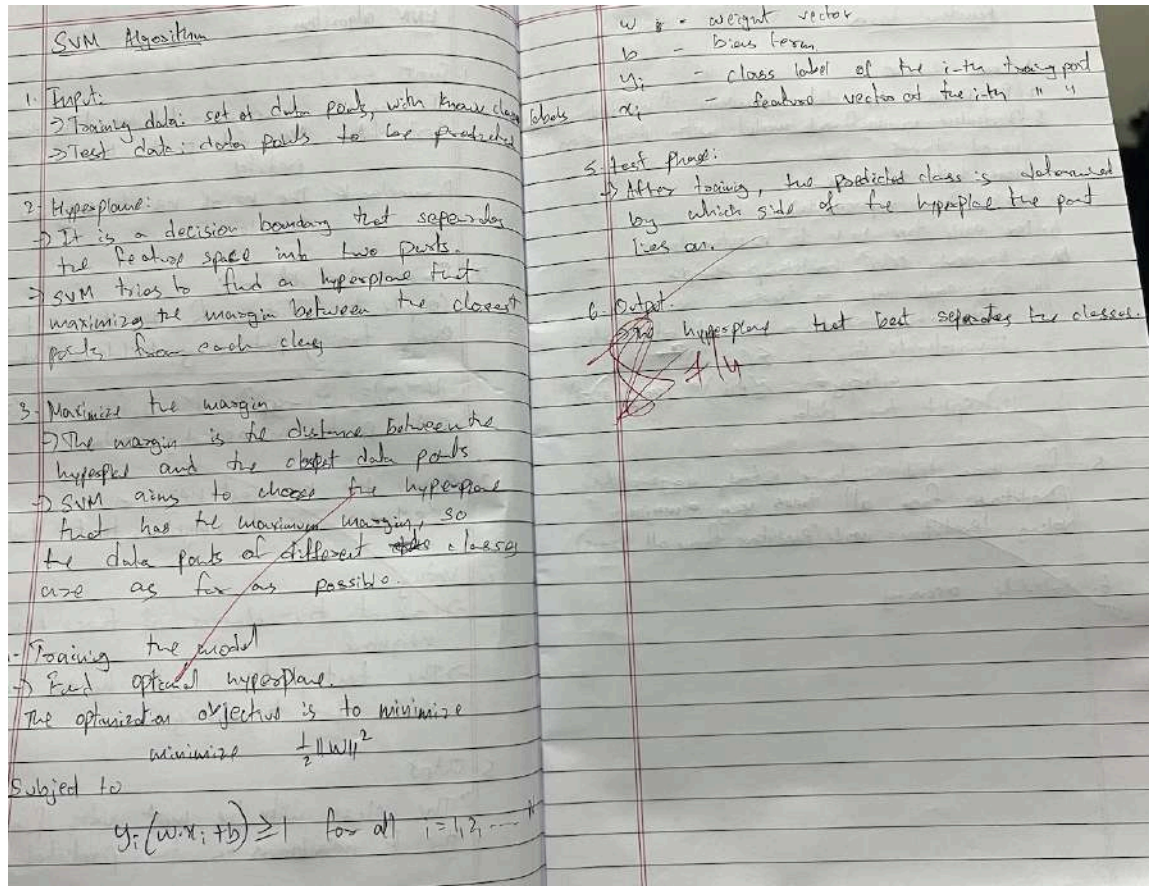 SVM Algorithm
1. Input:
→ Training data: set of data points, with known class labels
→ Test data: data points to be predicted
2- Hyperplane:
→ It is a decision boundary that seperates
the feature space into two parts.
→ SVM tries to find a hyperplane that
maximizes the margin between the closest
points from each class
3- Maximize the margin
→ The margin is the distance between the
and the closest data points
→ SVM aims to choose the hyperplane
that has the maximum margin, so
the data points of different classes
are as far as possible.
- Training the model
→ Find optimal hyperplane.
The optimization objective is to minimize
minimize ½||W||²
Subject to
yᵢ(w.xᵢ+b) ≥ 1 for all i = 1, 2, ---- N
w - weight vector
b - bias term
yᵢ - class label of the i-th
xᵢ - feature vector of the i-th " "
5- Test Phase:
→ After training, the predicted class is determined
by which side of the the point
lies on.
6- Output.
hyperplane that best seperates the classes.